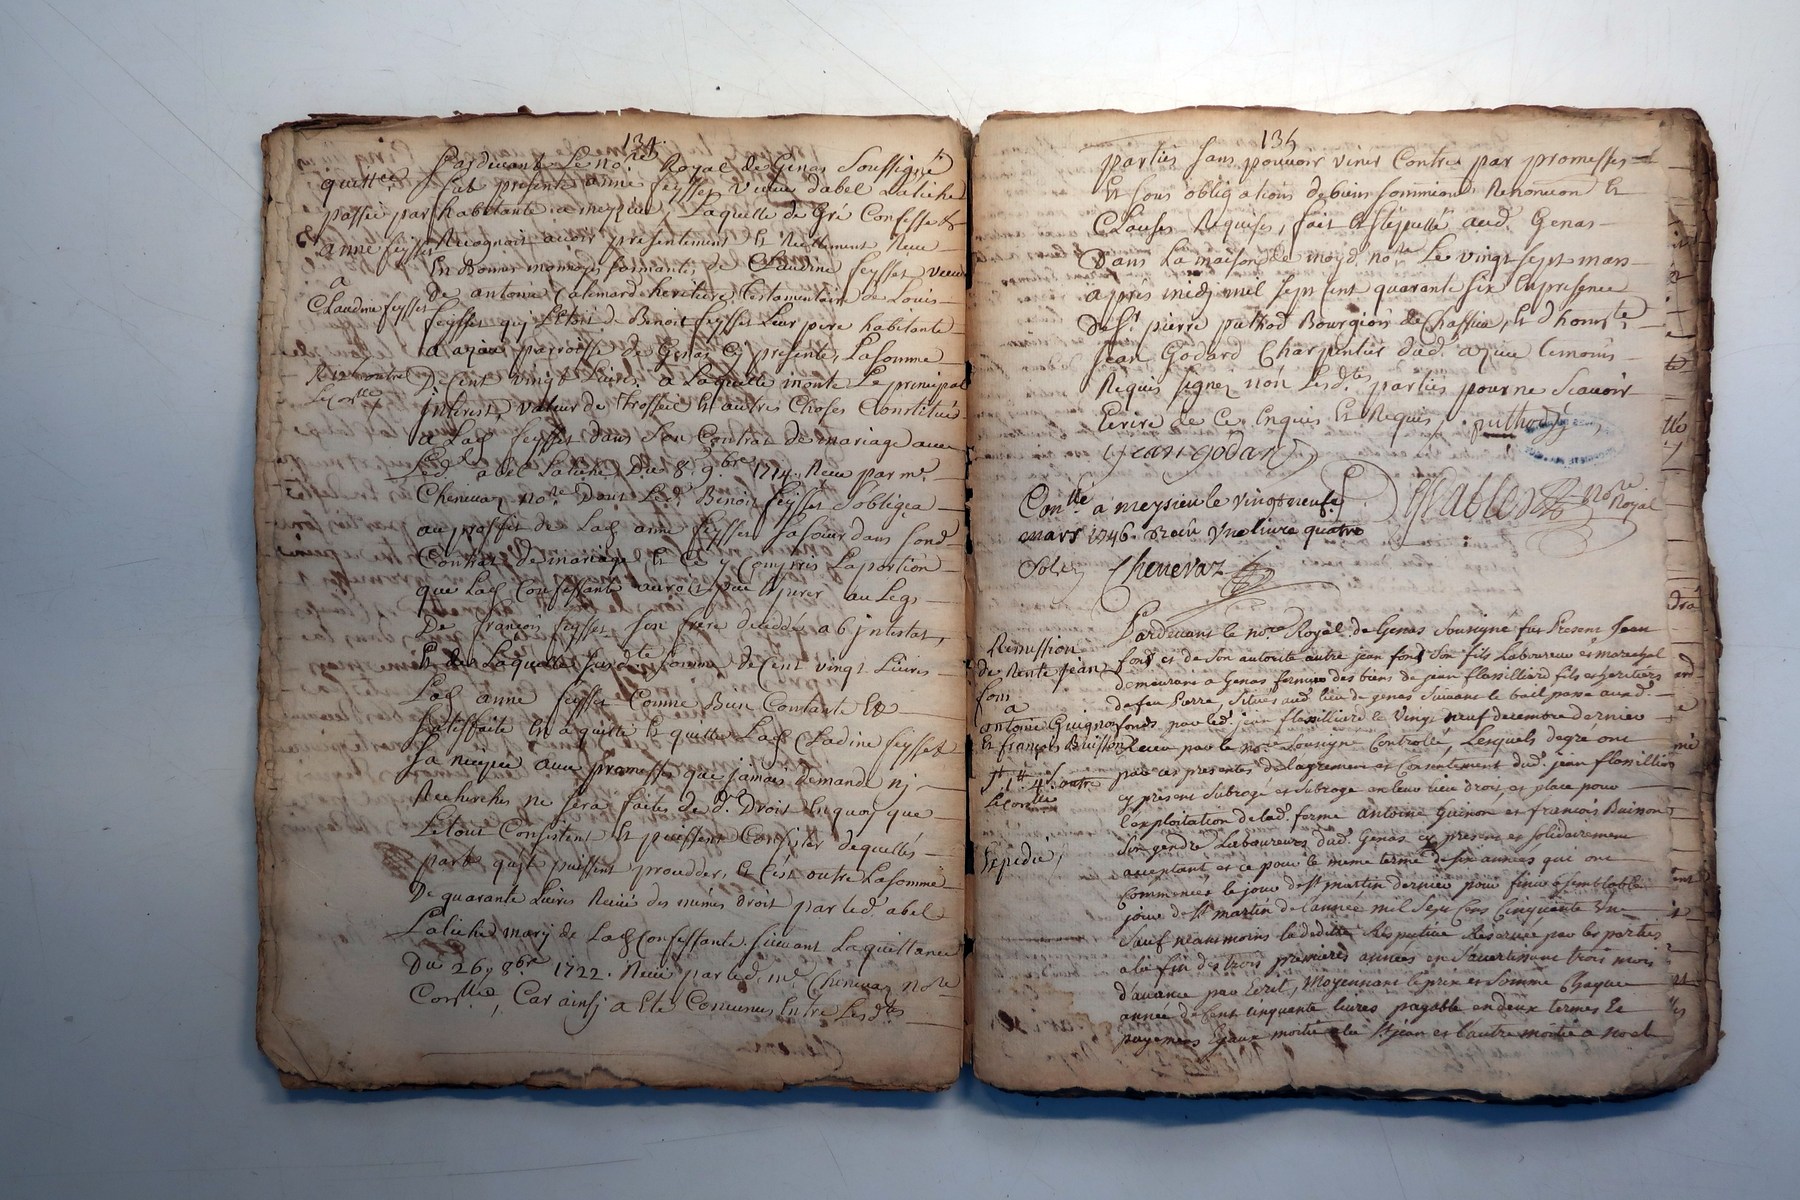 134.
quittce
passée par
anne feysset
a
Claudine feysset
Pardevant Le no.re Royal de Genas Soussigné
fut présente anne feysset veuve d'abel Laliche
habitante a meyzieu, Laquelle de Gré Confesse &
Recognoit avoir présentement Et Réellement Receu
En bonnes monoyes de Claudine feysset veuve
De antoine Calemard heritiere testamentaire de Louis
feysset qui L'étoit de Benoit feysset Leur pere habitante
a azieu parroisse de Genas Cy presente, La Somme
De Cent vingt Livres, a Laquelle monte Le principal
interest, valeur de trossel Et autres Choses Constitué
a Lad. feysset dans Son Contrat de mariage avec
Led. abel Laliche Du 8. 9.bre 1714. Receu par m.e
Chenevaz no.re Dont Led. Benoit feysset s'obligea
au proffit de Lad. anne feysset Sa Soeur dans Sond.
Contrat de mariage Et Ce y Compris La portion
que Lad. Confessante auroit peu Esperer au Legs
De françois feysset Son frere décédé ab intestat,
Et de Laquelle Susd.te Somme de Cent vingt Livres
Lad. anne feysset Comme Bien Contante Et
Satisffaite En a quitté Et quitte Lad. Cladine feysset
Sa niepce avec promesses que jamais demande nj
Recherches ne Sera faites de d. Droit En quoy que
Le tout Consistent Et puissent Consister de quelles
parts qu'ils puissent proceder, Et C'est outre La Somme
De quarante Livres Receues des mêmes droit par led. abel
Laliche mary de Lad. Confessante Suivant La quittance
Du 26. 8.bre 1722. Receu par led. m.e Chenevaz no.re
Con.llée, Car ainsj a Eté Convenus Entre Lesd.tes
135
parties Sans pouvoir venir Contre par promesses
Et Sous obligations de biens Soumissions Renoncion Et
Clauses Requises, fait Et Stipullé aud. Genas
Dans La maison de moyd. no.re Le vingt Sept mars
après midj mil Sept Cent quarante Six En presence
De S.r pierre puthod Bourgeois de Chassieu, Et d'honn.te
jean Godard Charpentier dud. azieu temoins
Requis Signez non Lesd.tes parties pour ne Scavoir
Ecrire de Ce Enquis Et Requis / puthod
jean godard
no.re Royal
Con.lle a meysieu le vingt neuf.e
mars 1746. Receu Une livre quatre
Sols Chenevaz
Remission
de Rente jean
fond
a
antoine Guignon
Et françois Buisson
Expedié
Pardevant le no.re Royal de Genas Sousigné fut Present Jean
fond et de Son autorité autre jean fond Son fils Laboureur et marechal
demeurant a Genas fermier des biens de jean flassilliere fils et heritiers
de feu Pierre Situés aud. lieu de genas Suivant le bail passé auxd.
fonds par led. jean flassilliere le Vingt neuf decembre dernier
Receu par le no.re Sousigné Controllé, Lesquels de gré ont
par ces presentes de l'agrement et Consentement dud. jean flassilliere
cy présent Subrogé et Subroge en leur lieu droit et place pour
l'exploitation de lad. ferme antoine Guinon et françois Buisson
Son gendre Laboureurs dud. Genas cy presents et Solidairement
acceptant, et ce pour le meme terme de Six années qui ont
Commencés le jour de S.t martin dernier pour finir a Semblable
jour de S.t martin de l'année mil Sept Cens Cinquante Une
Sauf neanmoins la dedite Respective Reservée par les parties
a la fin des trois premieres années en S'avertissant trois mois
d'avance par Ecrit, Moyennant le prix et Somme Chaque
année de Cent Cinquante livres payable en deux termes Et
payements Egaux moitié a la S.t jean et l'autre moitié a noel